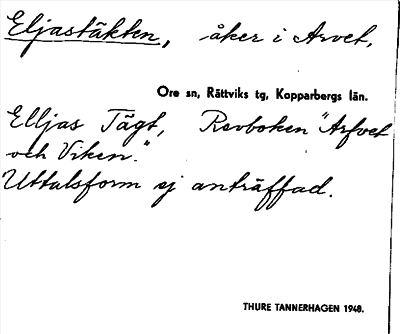 Eljastäkten, åker i Arvet.
Ore sn, Rättviks tg, Kopparbergs län.
Elljas Tägt, Revboken "Arfvet
och Viken."
Uttalsform ej anträffad.
THURE TANNERHAGEN 1948.